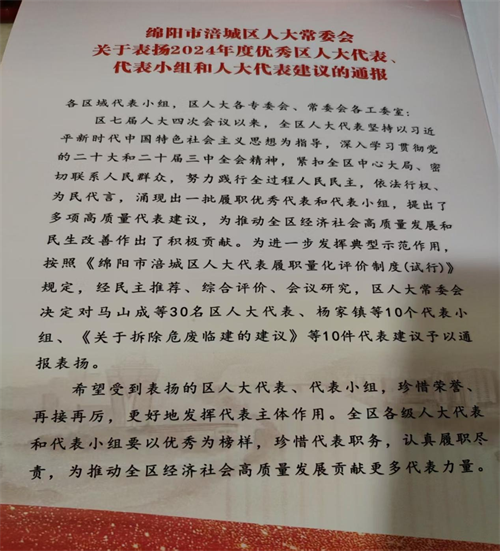 绵阳市涪城区人大常委会
关于表扬2024年度优秀区人大代表、
代表小组和人大代表建议的通报
各区域代表小组，区人大各专委会、常委会各工委室：
区七届人大四次会议以来，全区人大代表坚持以习近
平新时代中国特色社会主义思想为指导，深入学习贯彻党
的二十大和二十届三中全会精神，紧扣区中心大局、密
切联系人民群众，努力践行全过程人民民主，依法行权、
为民代言，涌现出一批履职优秀代表和代表小组，提出了
多项高质量代表建议，为推动全区经济社会高质量发展和
民生改善作出了积极贡献。为进一步发挥典型示范作用，
按照《绵阳市涪城区人大代表履职量化评价制度(试行)》
规定，经民主推荐、综合评价、会议研究，区人大常委会
决定对马山成等30名区人大代表、杨家镇等10个代表小
组、《关于拆除危废临建的建议》等10件代表建议予以通
报表扬。
希望受到表扬的区人大代表、代表小组，珍惜荣誉、
再接再厉，更好地发挥代表主体作用。全区各级人大代表
和代表小组要以优秀为榜样，珍惜代表职务，认真履职尽
责，为推动全区经济社会高质量发展贡献更多代表力量。